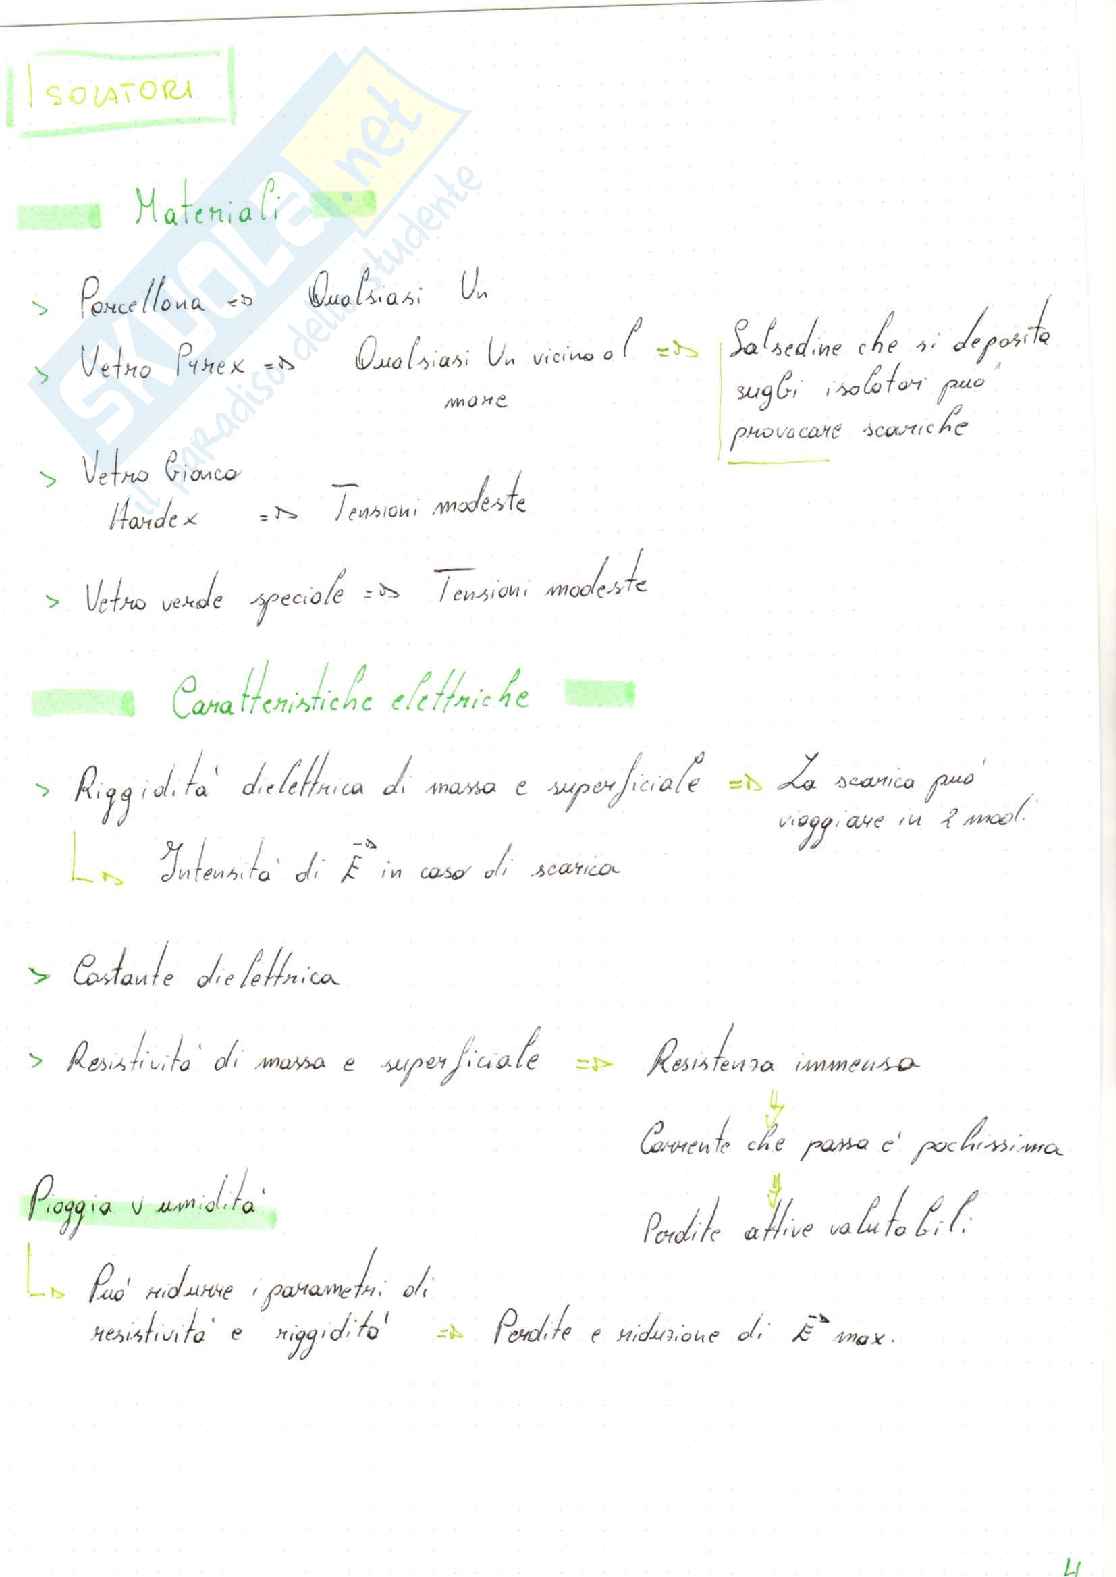 ISOLATORI
Materiali
> Porcellana => Qualsiasi Un
> Vetro Pirex => Qualsiasi Un vicino al => Salsedine che si deposita
mare
sugli isolatori può
provocare scariche
> Vetro bianco
Hardex => Tensioni modeste
> Vetro verde speciale => Tensioni modeste
Caratteristiche elettriche
> Riggidità dielettrica di massa e superficiale => La scarica può
viaggiare in 2 modi
Intensità di E in caso di scarica
> Costante dielettrica
> Resistività di massa e superficiale => Resistenza immensa
Corrente che passa è pochissima
Pioggia v umidità
Perdite attive valutabili
Può ridurre i parametri di
resistività e riggidità => Perdite e riduzione di E max.
4
SKUOLA.net
il paradiso dello studente